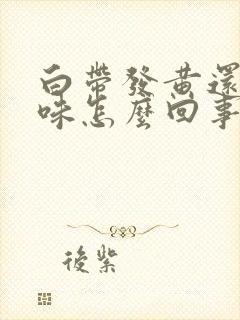 白帶發黃還
味怎麼回事
後紫